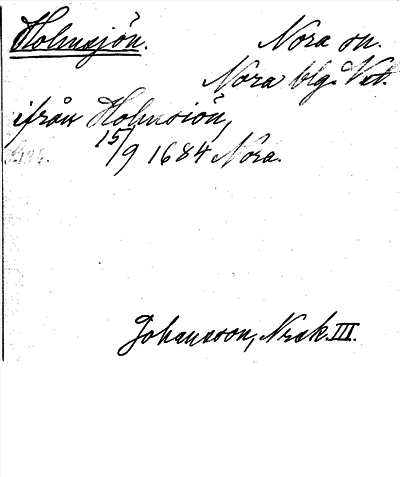 Holmsjön. Nora sn.
Nora blg. Vstl.
ifrån Holmsiön,
15/9 1684 Nora.
Johansson, Nrsk. III.